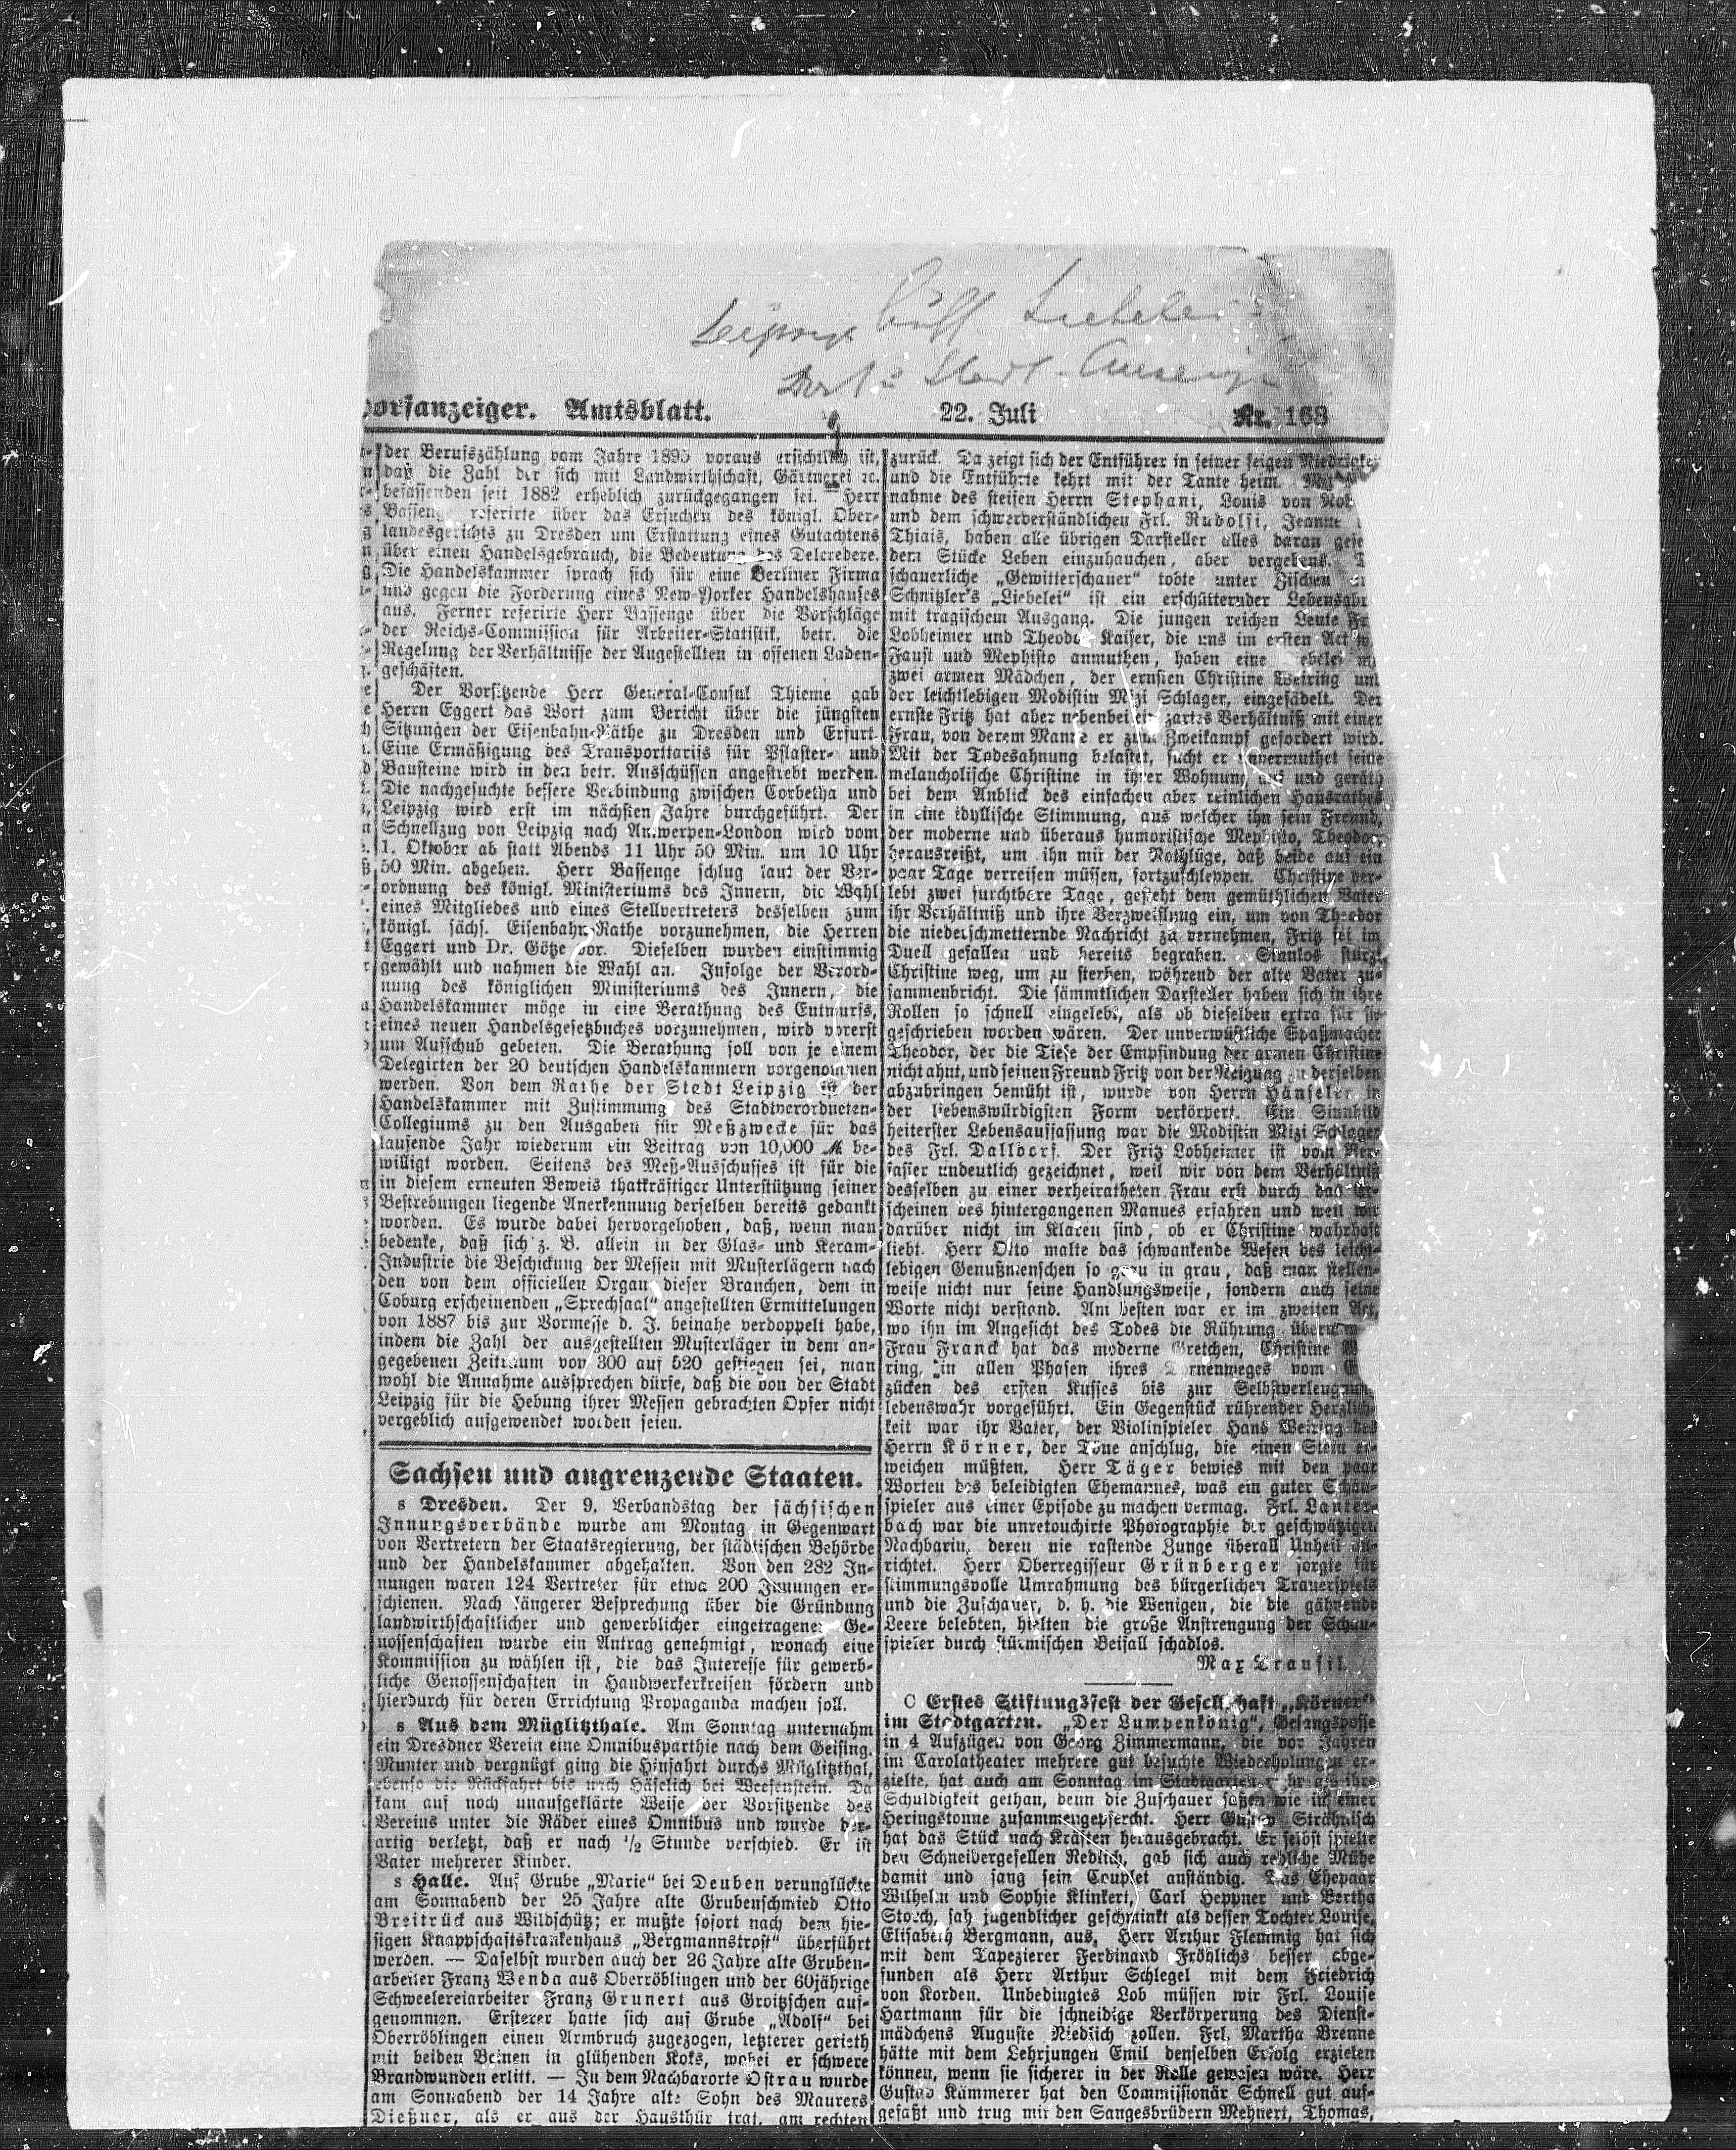 Leipzig
Dorf- Stadt-Anzeiger
dorfanzeiger. Amtsblatt. 22. Juli Nr. 168
der Berufszählung vom Jahre 1895 voraus ersichtlich ist,
daß die Zahl der sich mit Landwirthschaft, Gärtnerei ꝛc.
befassenden seit 1882 erheblich zurückgegangen sei. — Herr
Bassenge referirte über das Ersuchen des königl. Ober-
landesgerichts zu Dresden um Erstattung eines Gutachtens
über einen Handelsgebrauch, die Bedeutung des Delcredere.
Die Handelskammer sprach sich für eine Berliner Firma
und gegen die Forderung eines New-Yorker Handelshauses
aus. Ferner referirte Herr Bassenge über die Vorschläge
der Reichs-Commission für Arbeiter-Statistik, betr. die
Regelung der Verhältnisse der Angestellten in offenen Laden-
geschäften.
Der Vorsitzende Herr General-Consul Thieme gab
Herrn Eggert das Wort zum Bericht über die jüngsten
Sitzungen der Eisenbahn-Räthe zu Dresden und Erfurt.
Eine Ermäßigung des Transporttarifs für Pflaster- und
Bausteine wird in den betr. Ausschüssen angestrebt werden.
Die nachgesuchte bessere Verbindung zwischen Corbetha und
Leipzig wird erst im nächsten Jahre durchgeführt. Der
Schnellzug von Leipzig nach Antwerpen-London wird vom
1. Oktober ab statt Abends 11 Uhr 50 Min. um 10 Uhr
50 Min. abgehen. Herr Bassenge schlug laut der Ver-
ordnung des königl. Ministeriums des Innern, die Wahl
eines Mitgliedes und eines Stellvertreters desselben zum
königl. sächs. Eisenbahn-Rathe vorzunehmen, die Herren
Eggert und Dr. Götze vor. Dieselben wurden einstimmig
gewählt und nahmen die Wahl an. Infolge der Verord-
nung des königlichen Ministeriums des Innern, die
Handelskammer möge in eine Berathung des Entwurfs,
eines neuen Handelsgesetzbuches vorzunehmen, wird vorerst
um Aufschub gebeten. Die Berathung soll von je einem
Delegirten der 20 deutschen Handelskammern vorgenommen
werden. Von dem Rathe der Stadt Leipzig ist der
Handelskammer mit Zustimmung des Stadtverordneten-
Collegiums zu den Ausgaben für Meßzwecke für das
laufende Jahr wiederum ein Beitrag von 10,000 ℳ be-
willigt worden. Seitens des Meß-Ausschusses ist für die
in diesem erneuten Beweis thatkräftiger Unterstützung seiner
Bestrebungen liegende Anerkennung derselben bereits gedankt
worden. Es wurde dabei hervorgehoben, daß, wenn man
bedenke, daß sich z. B. allein in der Glas- und Keram-
Industrie die Beschickung der Messen mit Musterlägern nach
den von dem officiellen Organ dieser Branchen, dem in
Coburg erscheinenden „Sprechsaal“ angestellten Ermittelungen
von 1887 bis zur Vormesse d. J. beinahe verdoppelt habe,
indem die Zahl der ausgestellten Musterläger in dem an-
gegebenen Zeitraum von 300 auf 520 gestiegen sei, man
wohl die Annahme aussprechen dürfe, daß die von der Stadt
Leipzig für die Hebung ihrer Messen gebrachten Opfer nicht
vergeblich aufgewendet worden seien.
Sachsen und angrenzende Staaten.
s Dresden. Der 9. Verbandstag der sächsischen
Innungsverbände wurde am Montag in Gegenwart
von Vertretern der Staatsregierung, der städtischen Behörde
und der Handelskammer abgehalten. Von den 282 In-
nungen waren 124 Vertreter für etwa 200 Innungen er-
schienen. Nach längerer Besprechung über die Gründung
landwirthschaftlicher und gewerblicher eingetragener Ge-
nossenschaften wurde ein Antrag genehmigt, wonach eine
Kommission zu wählen ist, die das Interesse für gewerb-
liche Genossenschaften in Handwerkerkreisen fördern und
hierdurch für deren Errichtung Propaganda machen soll.
s Aus dem Müglitzthale. Am Sonntag unternahm
ein Dresdner Verein eine Omnibusparthie nach dem Geising.
Munter und vergnügt ging die Hinfahrt durchs Müglitzthal,
ebenso die Rückfahrt bis nach Häselich bei Weesenstein. Da
kam auf noch unaufgeklärte Weise der Vorsitzende des
Vereins unter die Räder eines Omnibus und wurde der-
artig verletzt, daß er nach ½ Stunde verschied. Er ist
Vater mehrerer Kinder.
s Halle. Auf Grube „Marie“ bei Deuben verunglückte
am Sonnabend der 25 Jahre alte Grubenschmied Otto
Breitrück aus Wildschütz; er mußte sofort nach dem hie-
sigen Knappschaftskrankenhaus „Bergmannstrost“ überführt
werden. — Daselbst wurden auch der 26 Jahre alte Gruben-
arbeiter Franz Benda aus Oberröblingen und der 60jährige
Schweelereiarbeiter Franz Grunert aus Groitzschen auf-
genommen. Ersterer hatte sich auf Grube „Adolf“ bei
Oberröblingen einen Armbruch zugezogen, letzterer gerieth
mit beiden Beinen in glühenden Koks, wobei er schwere
Brandwunden erlitt. — In dem Nachbarorte Ostrau wurde
am Sonnabend der 14 Jahre alte Sohn des Maurers
Dießner, als er aus der Hausthür trat, am rechten
zurück. Da zeigt sich der Entführer in seiner feigen Niedrigkei
und die Entführte kehrt mit der Tante heim. Mit
nahme des steifen Herrn Stephani, Louis von
und dem schwerverständlichen Frl. Rudolfi, Jeanne
Thiais, haben alle übrigen Darsteller alles daran gese
dem Stücke Leben einzuhauchen, aber vergebens.
schauerliche „Gewitterschauer“ tobte unter Zischen
Schnitzler's „Liebelei“ ist ein erschütternder
mit tragischem Ausgang. Die jungen reichen Leute Fr
Lobheimer und Theodor Kaiser, die uns im ersten Act w
Faust und Mephisto anmuthen, haben eine Liebelei mi
zwei armen Mädchen, der ernsten Christine Weiring und
der leichtlebigen Modistin Mizi Schlager, eingefädelt. Der
ernste Fritz hat aber nebenbei ein zartes Verhältniß mit einer
Frau, von derem Manne er zum Zweikampf gefordert wird.
Mit der Todesahnung belastet, sucht er unvermuthet seine
melancholische Christine in ihrer Wohnung auf und geräth
bei dem Anblick des einfachen aber reinlichen Hausrathes
in eine idyllische Stimmung, aus welcher ihn sein Freund,
der moderne und überaus humoristische Mephisto, Theodor,
herausreißt, um ihn mit der Nothlüge, daß beide auf ein
paar Tage verreisen müssen, fortzuschleppen. Christine ver-
lebt zwei furchtbare Tage, gesteht dem gemüthlichen Vater
ihr Verhältniß und ihre Verzweiflung ein, um von Theodor
die niederschmetternde Nachricht zu vernehmen, Fritz sei im
Duell gefallen und bereits begraben. Sinnlos stürzt
Christine weg, um zu sterben, während der alte Vater zu-
sammenbricht. Die sämmtlichen Darsteller haben sich in ihre
Rollen so schnell eingelebt, als ob dieselben extra für sie
geschrieben worden wären. Der unverwüstliche Spaßmacher
Theodor, der die Tiefe der Empfindung der armen Christine
nicht ahnt, und seinen Freund Fritz von der Neigung zu derselben
abzubringen bemüht ist, wurde von Herrn Hänseler in
der liebenswürdigsten Form verkörpert. Ein Sinnbild
heiterster Lebensauffassung war die Modistin Mizi Schlager
des Frl. Dalldorf. Der Fritz Lobheimer ist vom Ver-
fasser undeutlich gezeichnet, weil wir von dem Verhältniß
desselben zu einer verheiratheten Frau erst durch das Er-
scheinen des hintergangenen Mannes erfahren und weil wir
darüber nicht im Klaren sind, ob er Christine wahrhaft
liebt. Herr Otto malte das schwankende Wesen des leicht-
lebigen Genußmenschen so grau in grau, daß man stellen-
weise nicht nur seine Handlungsweise, sondern auch seine
Worte nicht verstand. Am besten war er im zweiten Act,
wo ihn im Angesicht des Todes die Rührung
Frau Franck hat das moderne Gretchen, Christine W
ring, in allen Phasen ihres Dornenweges vom
zücken des ersten Kusses bis zur Selbstverleugnung
lebenswahr vorgeführt. Ein Gegenstück rührender Herzlich-
keit war ihr Vater, der Violinspieler Hans Weiring des
Herrn Körner, der Töne anschlug, die einen Stein er-
weichen müßten. Herr Täger bewies mit den paar
Worten des beleidigten Ehemannes, was ein guter Schau-
spieler aus einer Episode zu machen vermag. Frl. Lauter-
bach war die unretouchirte Photographie der geschwätzigen
Nachbarin, deren nie rastende Zunge überall Unheil an-
richtet. Herr Oberregisseur Grünberger sorgte für
stimmungsvolle Umrahmung des bürgerlichen Trauerspiels
und die Zuschauer, d. h. die Wenigen, die die gähnende
Leere belebten, hielten die große Anstrengung der Schau-
spieler durch stürmischen Beifall schadlos.
Max Trausil.
O Erstes Stiftungsfest der Gesellschaft „Körner“
im Stadtgarten. „Der Lumpenkönig“, Gesangsposse
in 4 Aufzügen von Georg Zimmermann, die vor Jahren
im Carolatheater mehrere gut besuchte Wiederholungen er-
zielte, hat auch am Sonntag im Stadtgarten mehr als ihre
Schuldigkeit gethan, denn die Zuschauer saßen wie in einer
Heringstonne zusammengepfercht. Herr Gustav Strähnisch
hat das Stück nach Kräften herausgebracht. Er selbst spielte
den Schneidergesellen Redlich, gab sich auch redliche Mühe
damit und sang sein Couplet anständig. Das Ehepaar
Wilhelm und Sophie Klinkert, Carl Heppner und Bertha
Storch, sah jugendlicher geschminkt als dessen Tochter Louise,
Elisabeth Bergmann, aus. Herr Arthur Flemmig hat sich
mit dem Tapezierer Ferdinand Fröhlichs besser abge-
funden als Herr Arthur Schlegel mit dem Friedrich
von Korden. Unbedingtes Lob müssen wir Frl. Louise
Hartmann für die schneidige Verkörperung des Dienst-
mädchens Auguste Niedlich zollen. Frl. Martha Brenne
hätte mit dem Lehrjungen Emil denselben Erfolg erzielen
können, wenn sie sicherer in der Rolle gewesen wäre. Herr
Gustav Kämmerer hat den Commissionär Schnell gut auf-
gefaßt und trug mit den Sangesbrüdern Mehnert, Thomas,